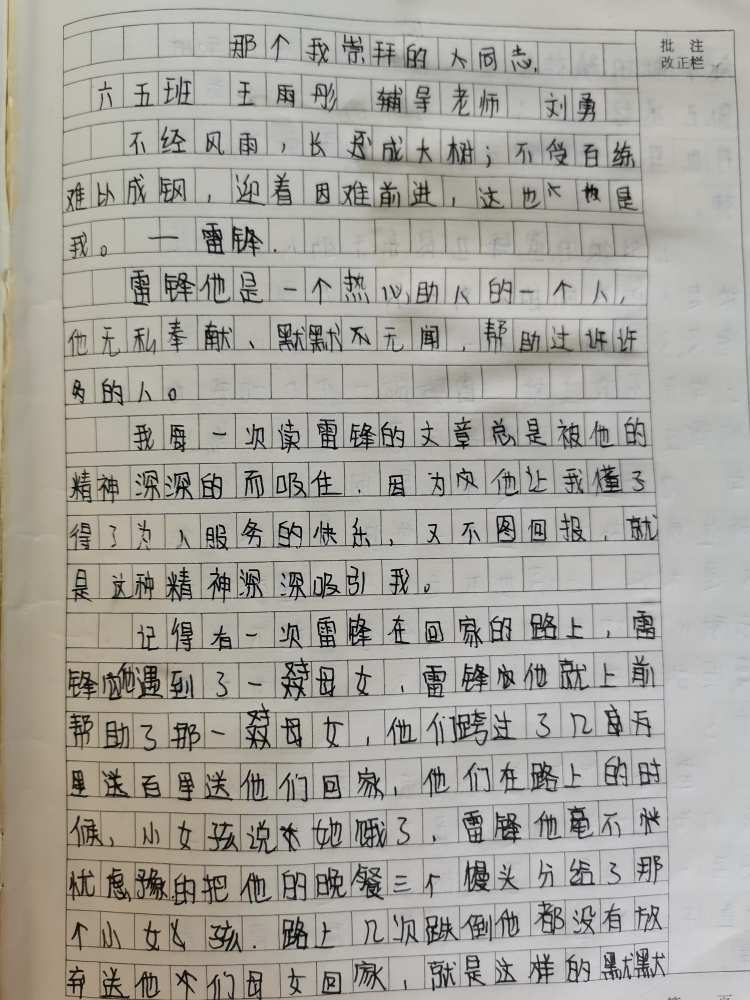 那个我崇拜的大同志.
批注
改正栏
六五班 王雨彤 辅导老师 刘勇
不经风雨，长不成大树；不受百练
难以成钢，迎着困难前进，这也是
我。一雷锋.
雷锋他是一个热心助人的一个人，
他无私奉献、默默不无闻，帮助过许许
多的人。
我每一次读雷锋的文章总是被他的
精神深深的而吸住.因为他让我懂了
得了为人服务的快乐，又不图回报，就
是这种精神深深吸引我。
记得有一次雷锋在回家的路上，雷
锋他遇到了一母女，雷锋他就上前
帮助了那一母女，他们跨过了几万
里送百里送他们回家，他们在路上的时
候、小女孩说她饿了、雷锋他毫不
忧虑豫的把他的晚餐三个馒头分给了那
个小女孩.路上几次跌倒他都没有放
弃送他们母女回家，就是这样的默默